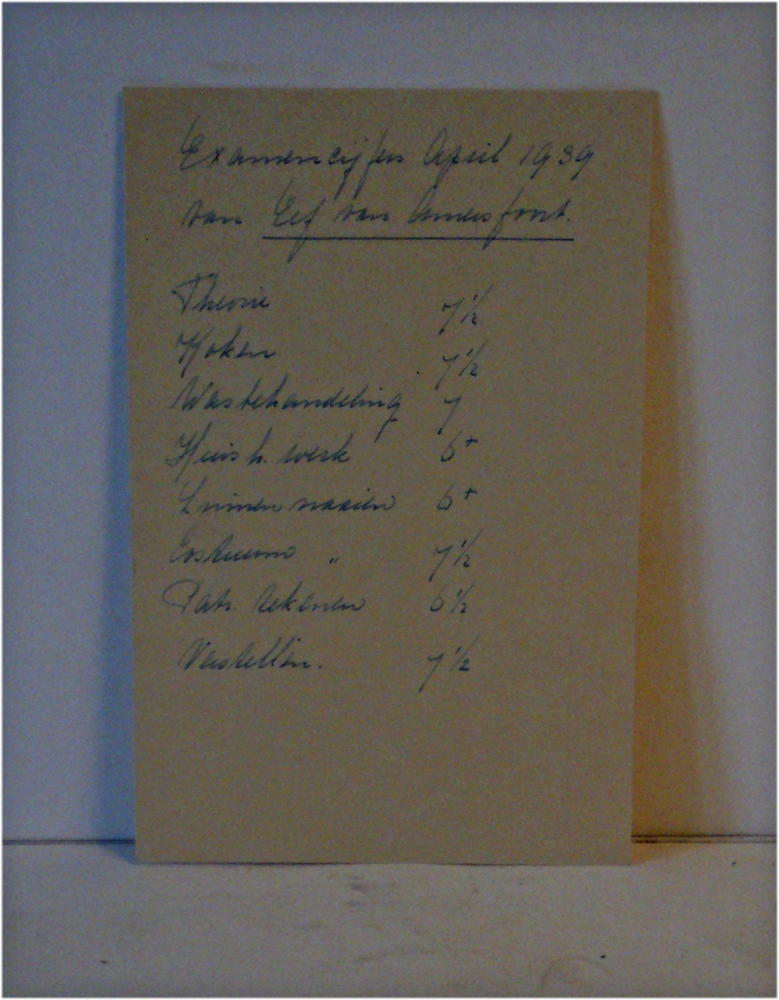 Examencijfers April 1939
van Eef van Amersfoort.
Theorie 7½
Koken 7½
Wasbehandeling 7
Huish. werk 6+
Linnen naaien 6+
Costuum „ 7½
Patr. tekenen 6½
Verstellen. 7½